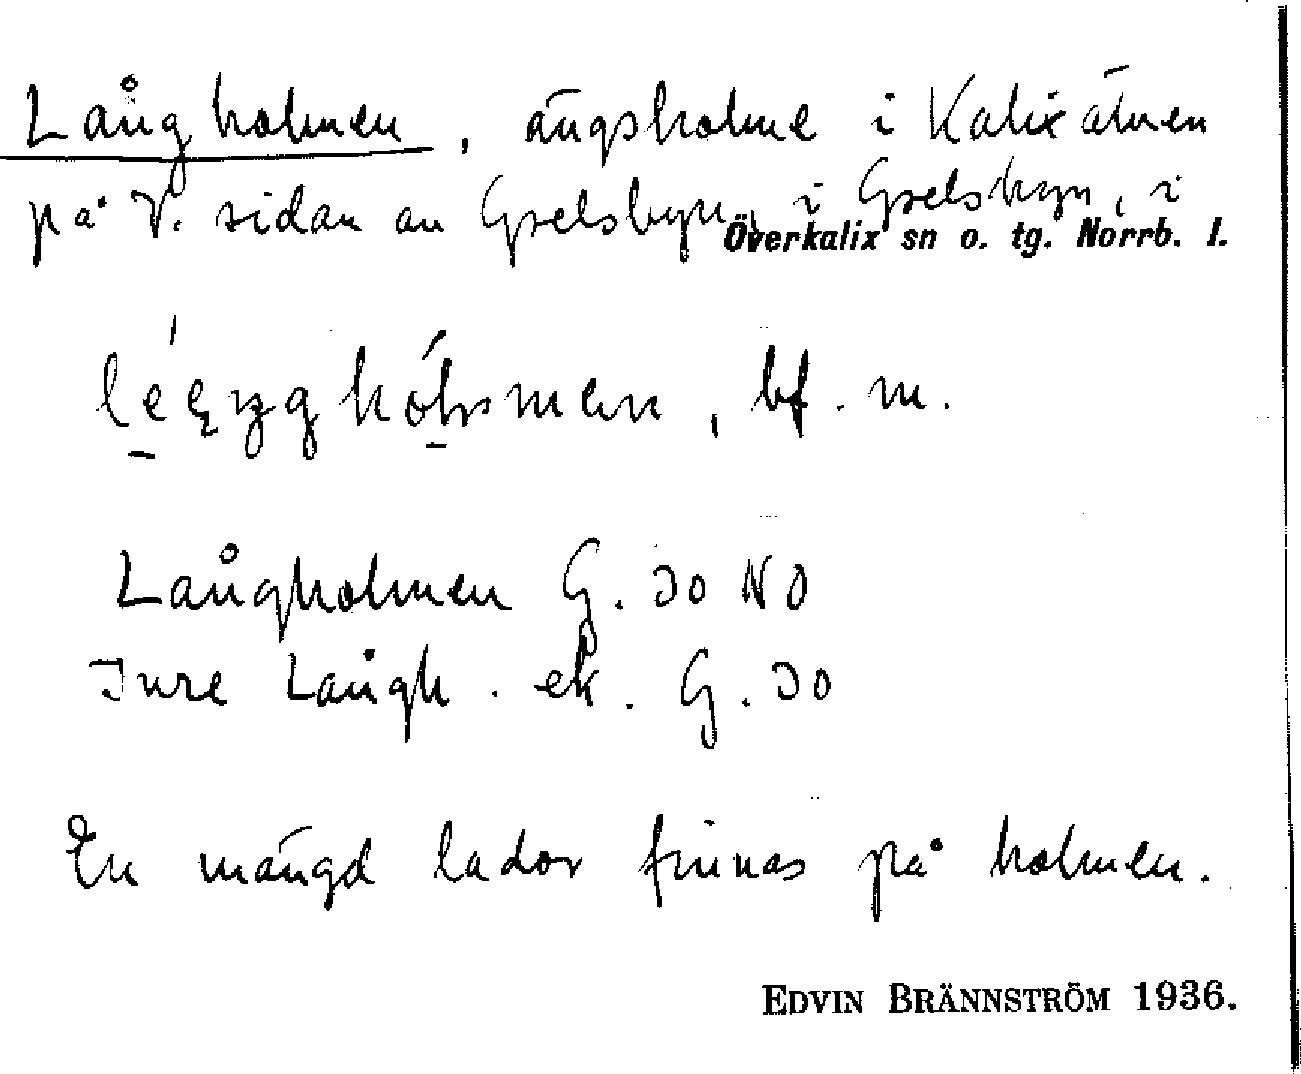 Långholmen, ängsholme i Kalixälven
på V. sidan av Grelsbyn, i Grelsbyn, i
Överkalix sn o. tg. Norrb. l.
bf. m.
Långholmen G. Jo No
Jure Långh. ek. G. Jo
En mängd lador finnas på holmen.
EDVIN BRÄNNSTRÖM 1936.